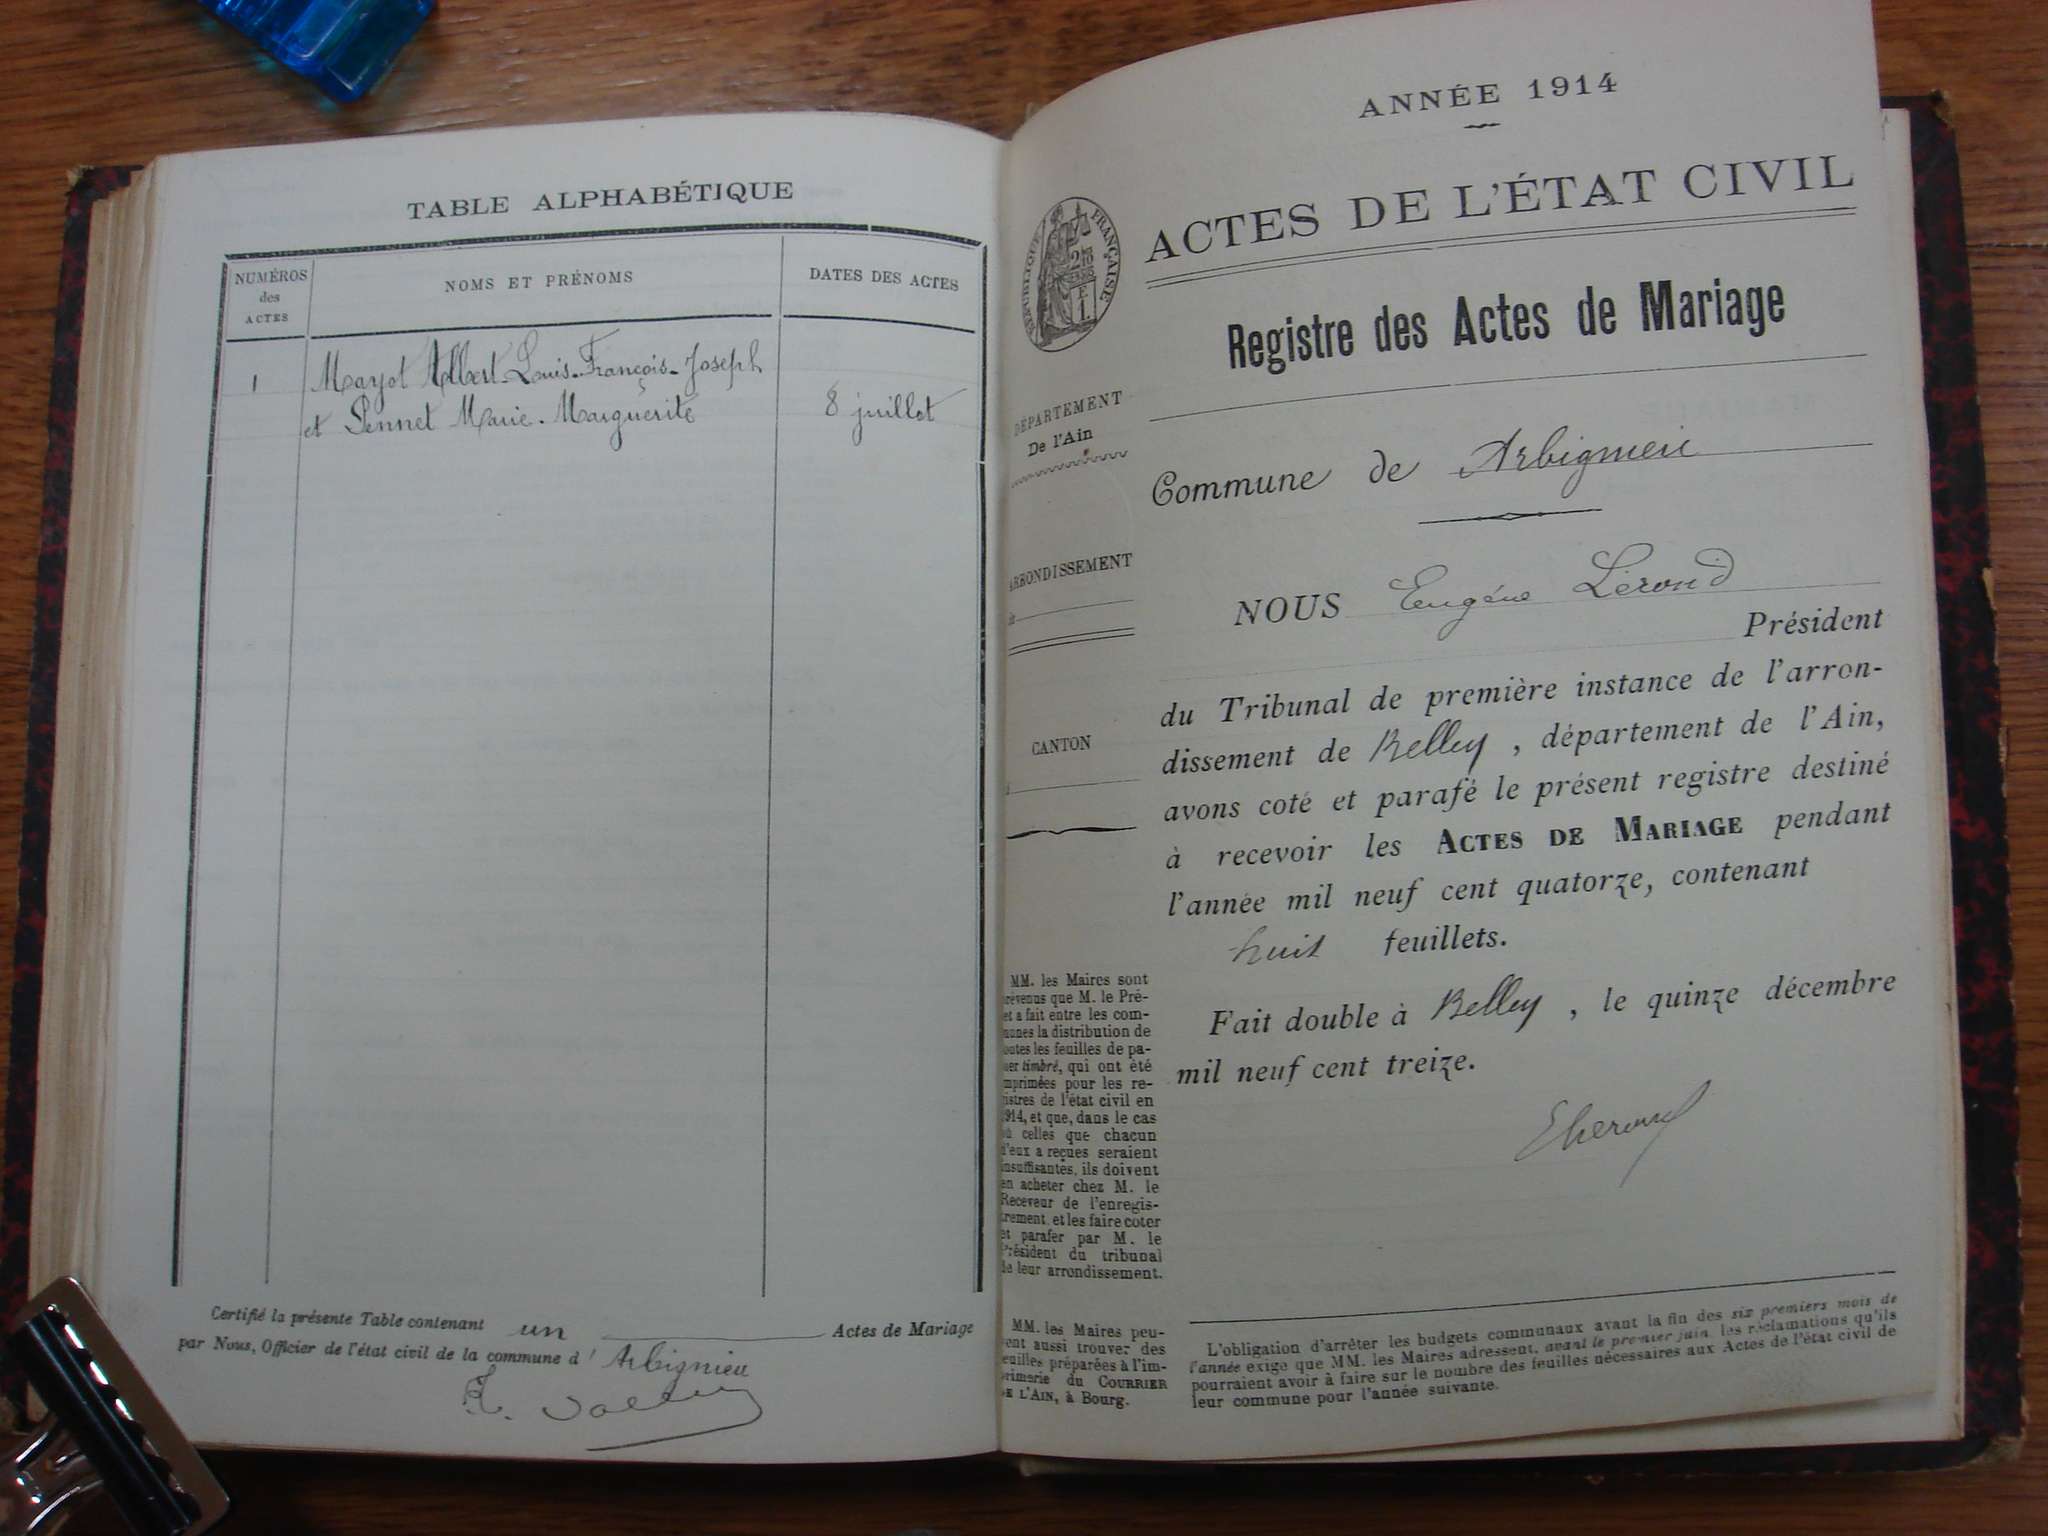 TABLE ALPHABÉTIQUE
NUMÉROS
des
ACTES
NOMS ET PRÉNOMS
DATES DES ACTES
1
Mayot Albert-Louis-François-Joseph
et Pennet Marie-Marguerite
8 juillet
Certifié la présente Table contenant un Actes de Mariage
par Nous, Officier de l'état civil de la commune d' Arbignieu
ANNÉE 1914
ACTES DE L'ÉTAT CIVIL
RÉPUBLIQUE FRANÇAISE
Registre des Actes de Mariage
DÉPARTEMENT
De l'Ain
ARRONDISSEMENT
CANTON
Commune de Arbignieu
NOUS Eugéne Lérond
Président
du Tribunal de première instance de l'arron-
dissement de Belley, département de l'Ain,
avons coté et parafé le présent registre destiné
à recevoir les ACTES DE MARIAGE pendant
l'année mil neuf cent quatorze, contenant
huit feuillets.
Fait double à Belley, le quinze décembre
mil neuf cent treize.
MM. les Maires sont
prévenus que M. le Pré-
et a fait entre les com-
munes la distribution de
toutes les feuilles de pa-
pier timbré, qui ont été
imprimées pour les re-
gistres de l'état civil en
1914, et que, dans le cas
où celles que chacun
d'eux a reçues seraient
insuffisantes, ils doivent
en acheter chez M. le
Receveur de l'enregis-
trement, et les faire coter
et parafer par M. le
Président du tribunal
de leur arrondissement.
MM. les Maires peu-
vent aussi trouver des
feuilles préparées à l'im-
primerie du COURRIER
DE L'AIN, à Bourg.
L'obligation d'arrêter les budgets communaux avant la fin des six premiers mois de
l'année exige que MM. les Maires adressent, avant le premier juin, les réclamations qu'ils
pourraient avoir à faire sur le nombre des feuilles nécessaires aux Actes de l'état civil de
leur commune pour l'année suivante.